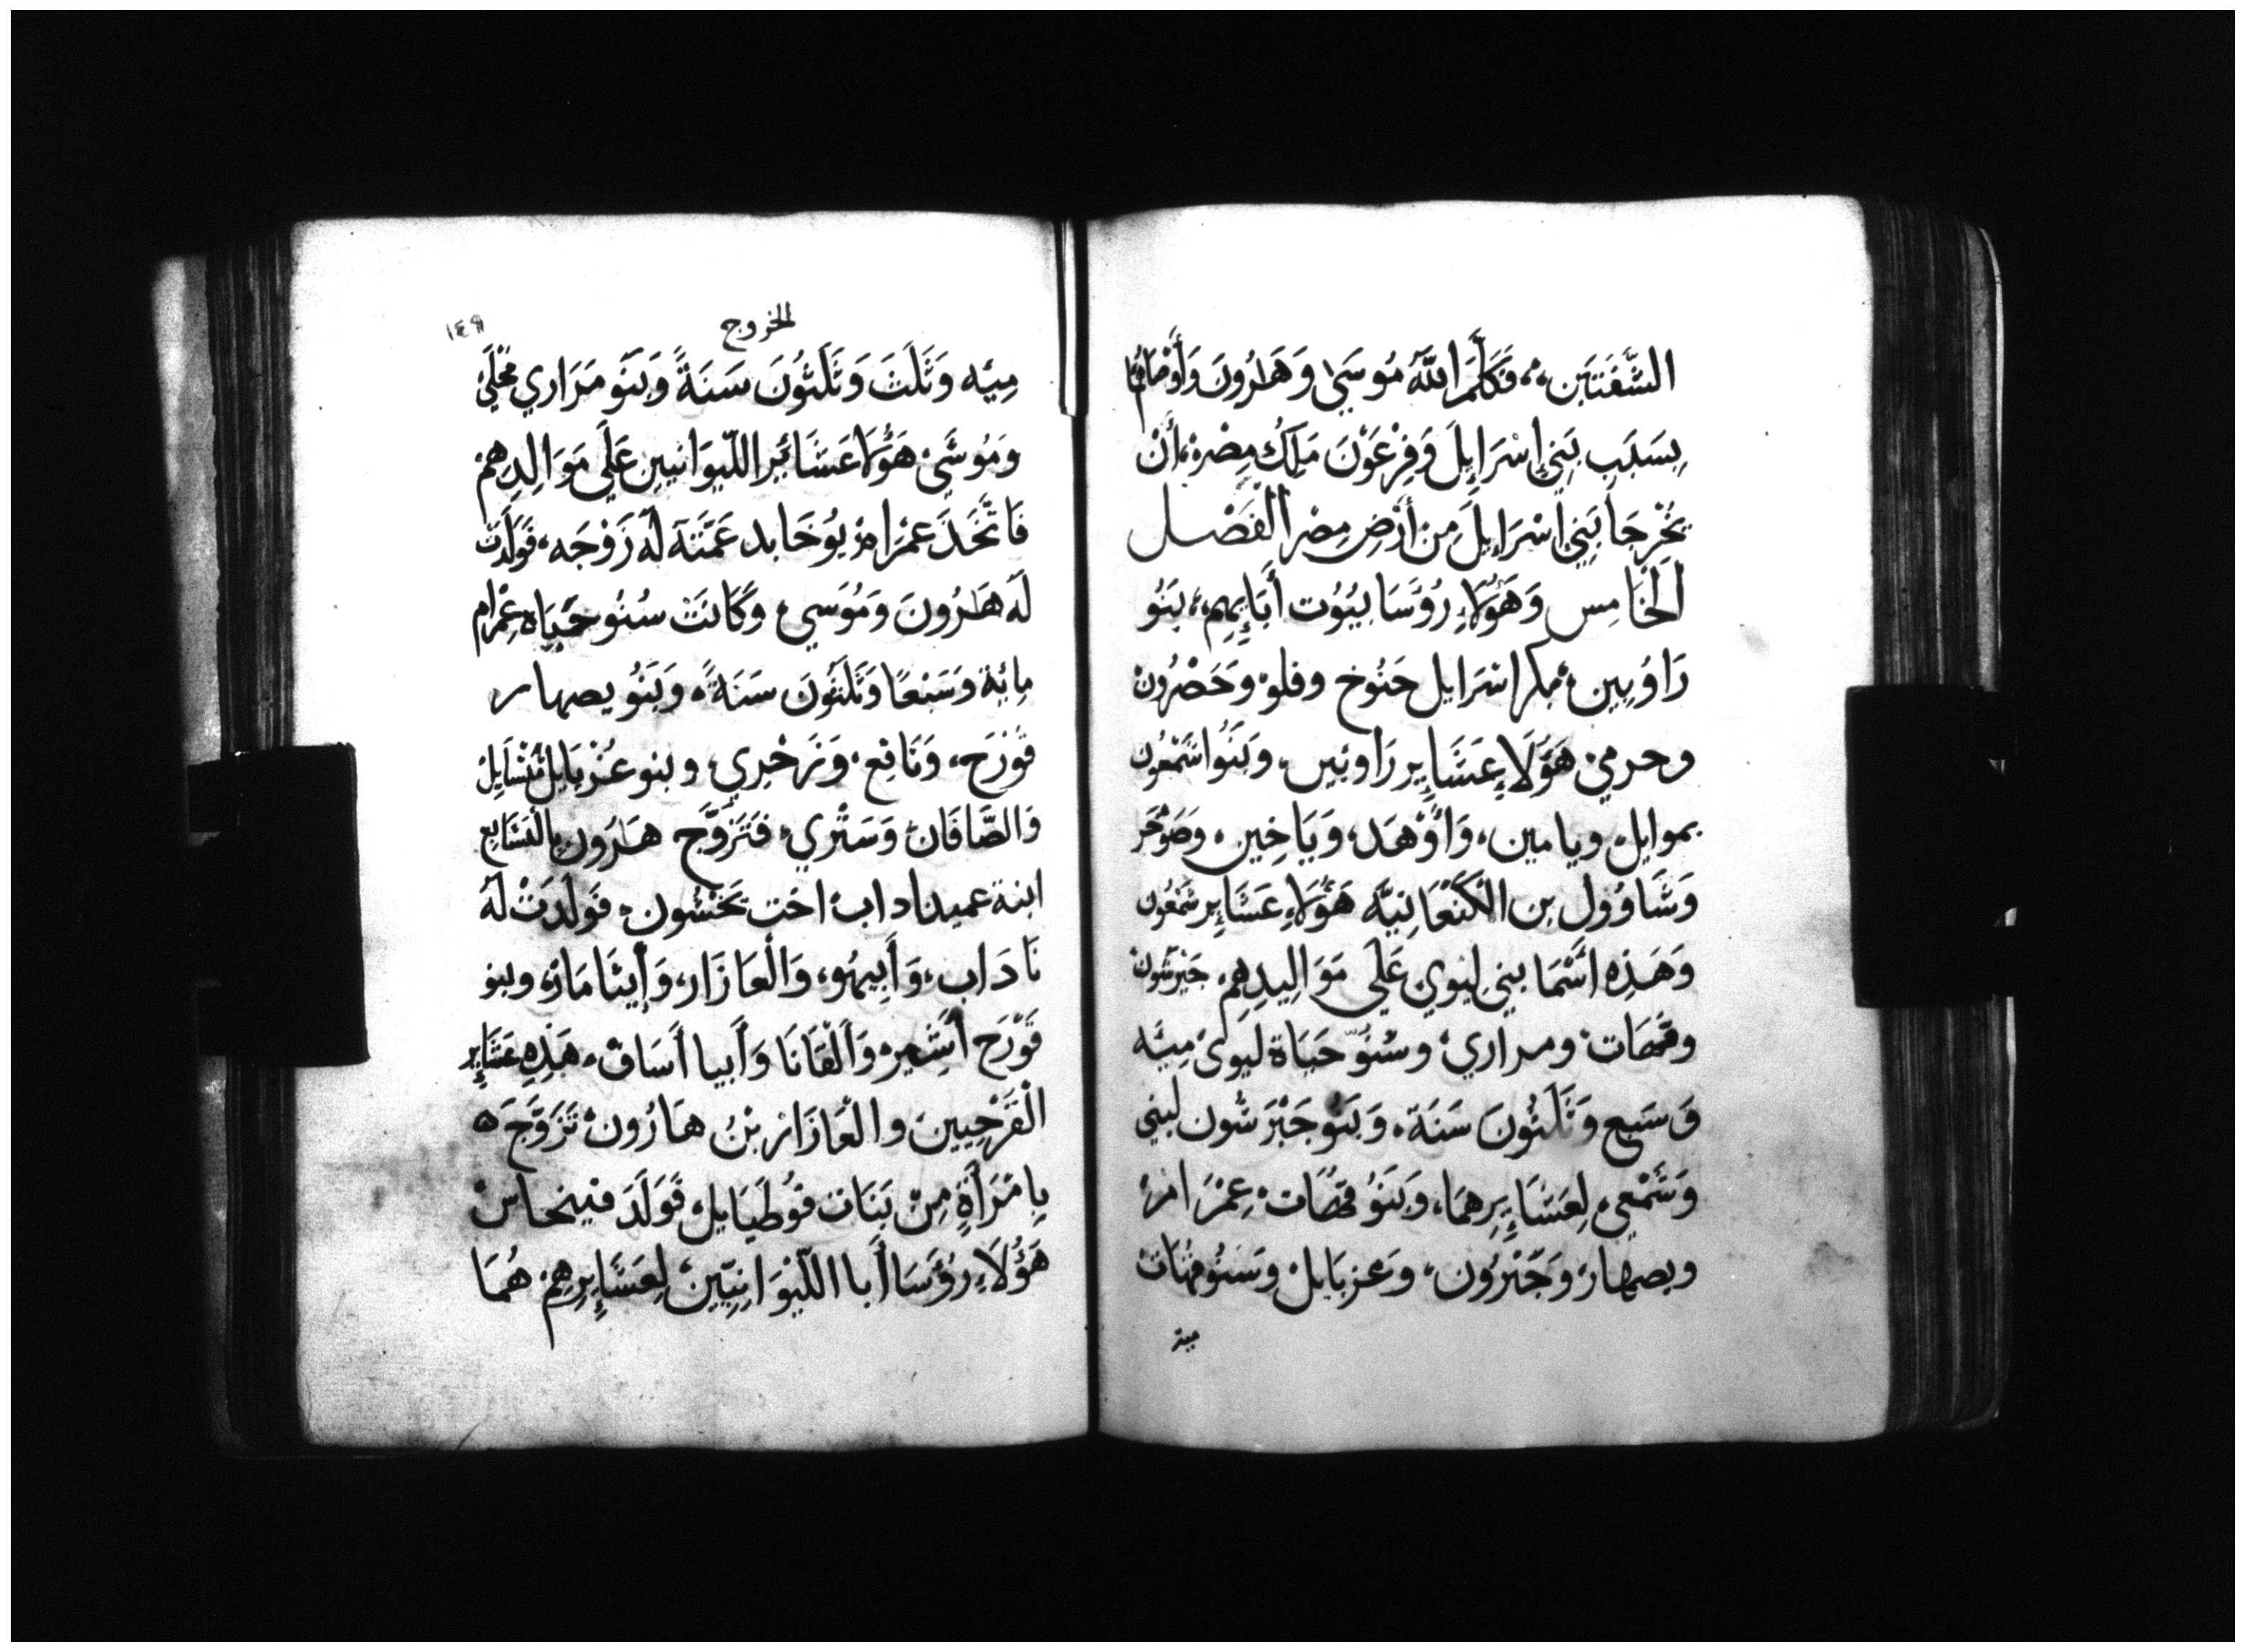 الشَّفَتَيَنِ، فَكَلَّمَ اللَّهَ مُوسَيٰ وَهَٰرُونَ وَأَوْصَاهُمَا
بِسَبَبِ بَنِي إِسْرَايِلَ وَفِرْعَوْنَ مَلِكُ مِصْرَ، أَنْ
يُخْرِجَا بَنِي إِسْرَايِلَ مِنْ أَرْضِ مِصْرَ الفَصْل
الَخَامِس وَهَؤُلَاءِ رُؤَسَا بيُوُت أَبَايِهِم، بَنُو
رَاوُبِين، بكر اسْرَايل حَنُوخ وفلوْ وحَصْرُونْ
وحرميْ هَؤُلَاءِ عَشَايِر رَاوبَين، وَبَنُوا شَمْعُون
يموايلْ ويامين، وَأَوْهَد، وَيَاخِين، وَصَوْحَر
وَشَاوُول بن الْكَنْعَانِيَّه هَؤُلَاءِ عَشَايِر شَمْعُون
وَهَذِهِ اسْمَا بني لِيوِي عَلَي مَوَالِيدِهِمْ جَبْرشُون
وقَهَات ومراري وسُنُوّ حَيَاة ليوى مِيَّه
وَسَبع وَثَلَثُونَ سَنَة، وَبَنُو جَبْرَشُون لبني
وَشَمْعي، لِعَشَايِرِهمَا، وَبَنَوُ قَهَات، عِمْرَامْ
ويصهار، وَحَبْرُون، وَعزيايل وَسُنُو قهَات
مية
الخروج
١٤٩
مِيَّه وَثَلَثَ وَثَلَثُونَ سَنَةً وَبَنَو مَرَاري مُحْلَي
وَمُوشَي هَؤُلَا عَشَائِر اللّيوَانيين عَلَي مَوَالِدِهِم
فَاتَّخَذَ عمْرَامْ يُوخَابد عَمَّتَهَ لَهَ زَوْجَه، فَوَلَدَت
لَهَ هَٰرُونَ وَمُوَسي وَكَانَتْ سُنُو حَيَاة عِمْرَام
مِائِة وَسَبْعًا وَثَلَثَوُنَ سَنَةً، وَبَنُو يصهار
قُوْرَح، وَنَافع، وَزَخْرِي، وبنو عُزيَايل مَنْشَايلْ
وَالصَّافَان وَسَتْري، فَتَزَوَّج هَرَون بِاليَشَابع
ابنة عميناداب اخت نَحْشُون، فَوَلَدَتْ لَهُ
نَادَاب، وَأَبِيهُو، وَالْعَازَار، وَإِيثَامَارْ، وبنو
قَوْرَح أَشِيرْ وَأَلْقَانَا وَأَبيا أَسَافْ، هَذِهِ عَشَايِر
الْقَرَحِيينَ والعَازَازْ بْنُ هَارُونْ تَزَوَّجَ ه
بِامْرَأَةٍ مِنْ بَنَات فوُطيَايل، فَوَلَدَ فينحاسْ
هَؤُلَاءِ رُؤَسَا أَبا اللّيْوَانِيّين، لِعَشَايِرِهِمْ هُمَا